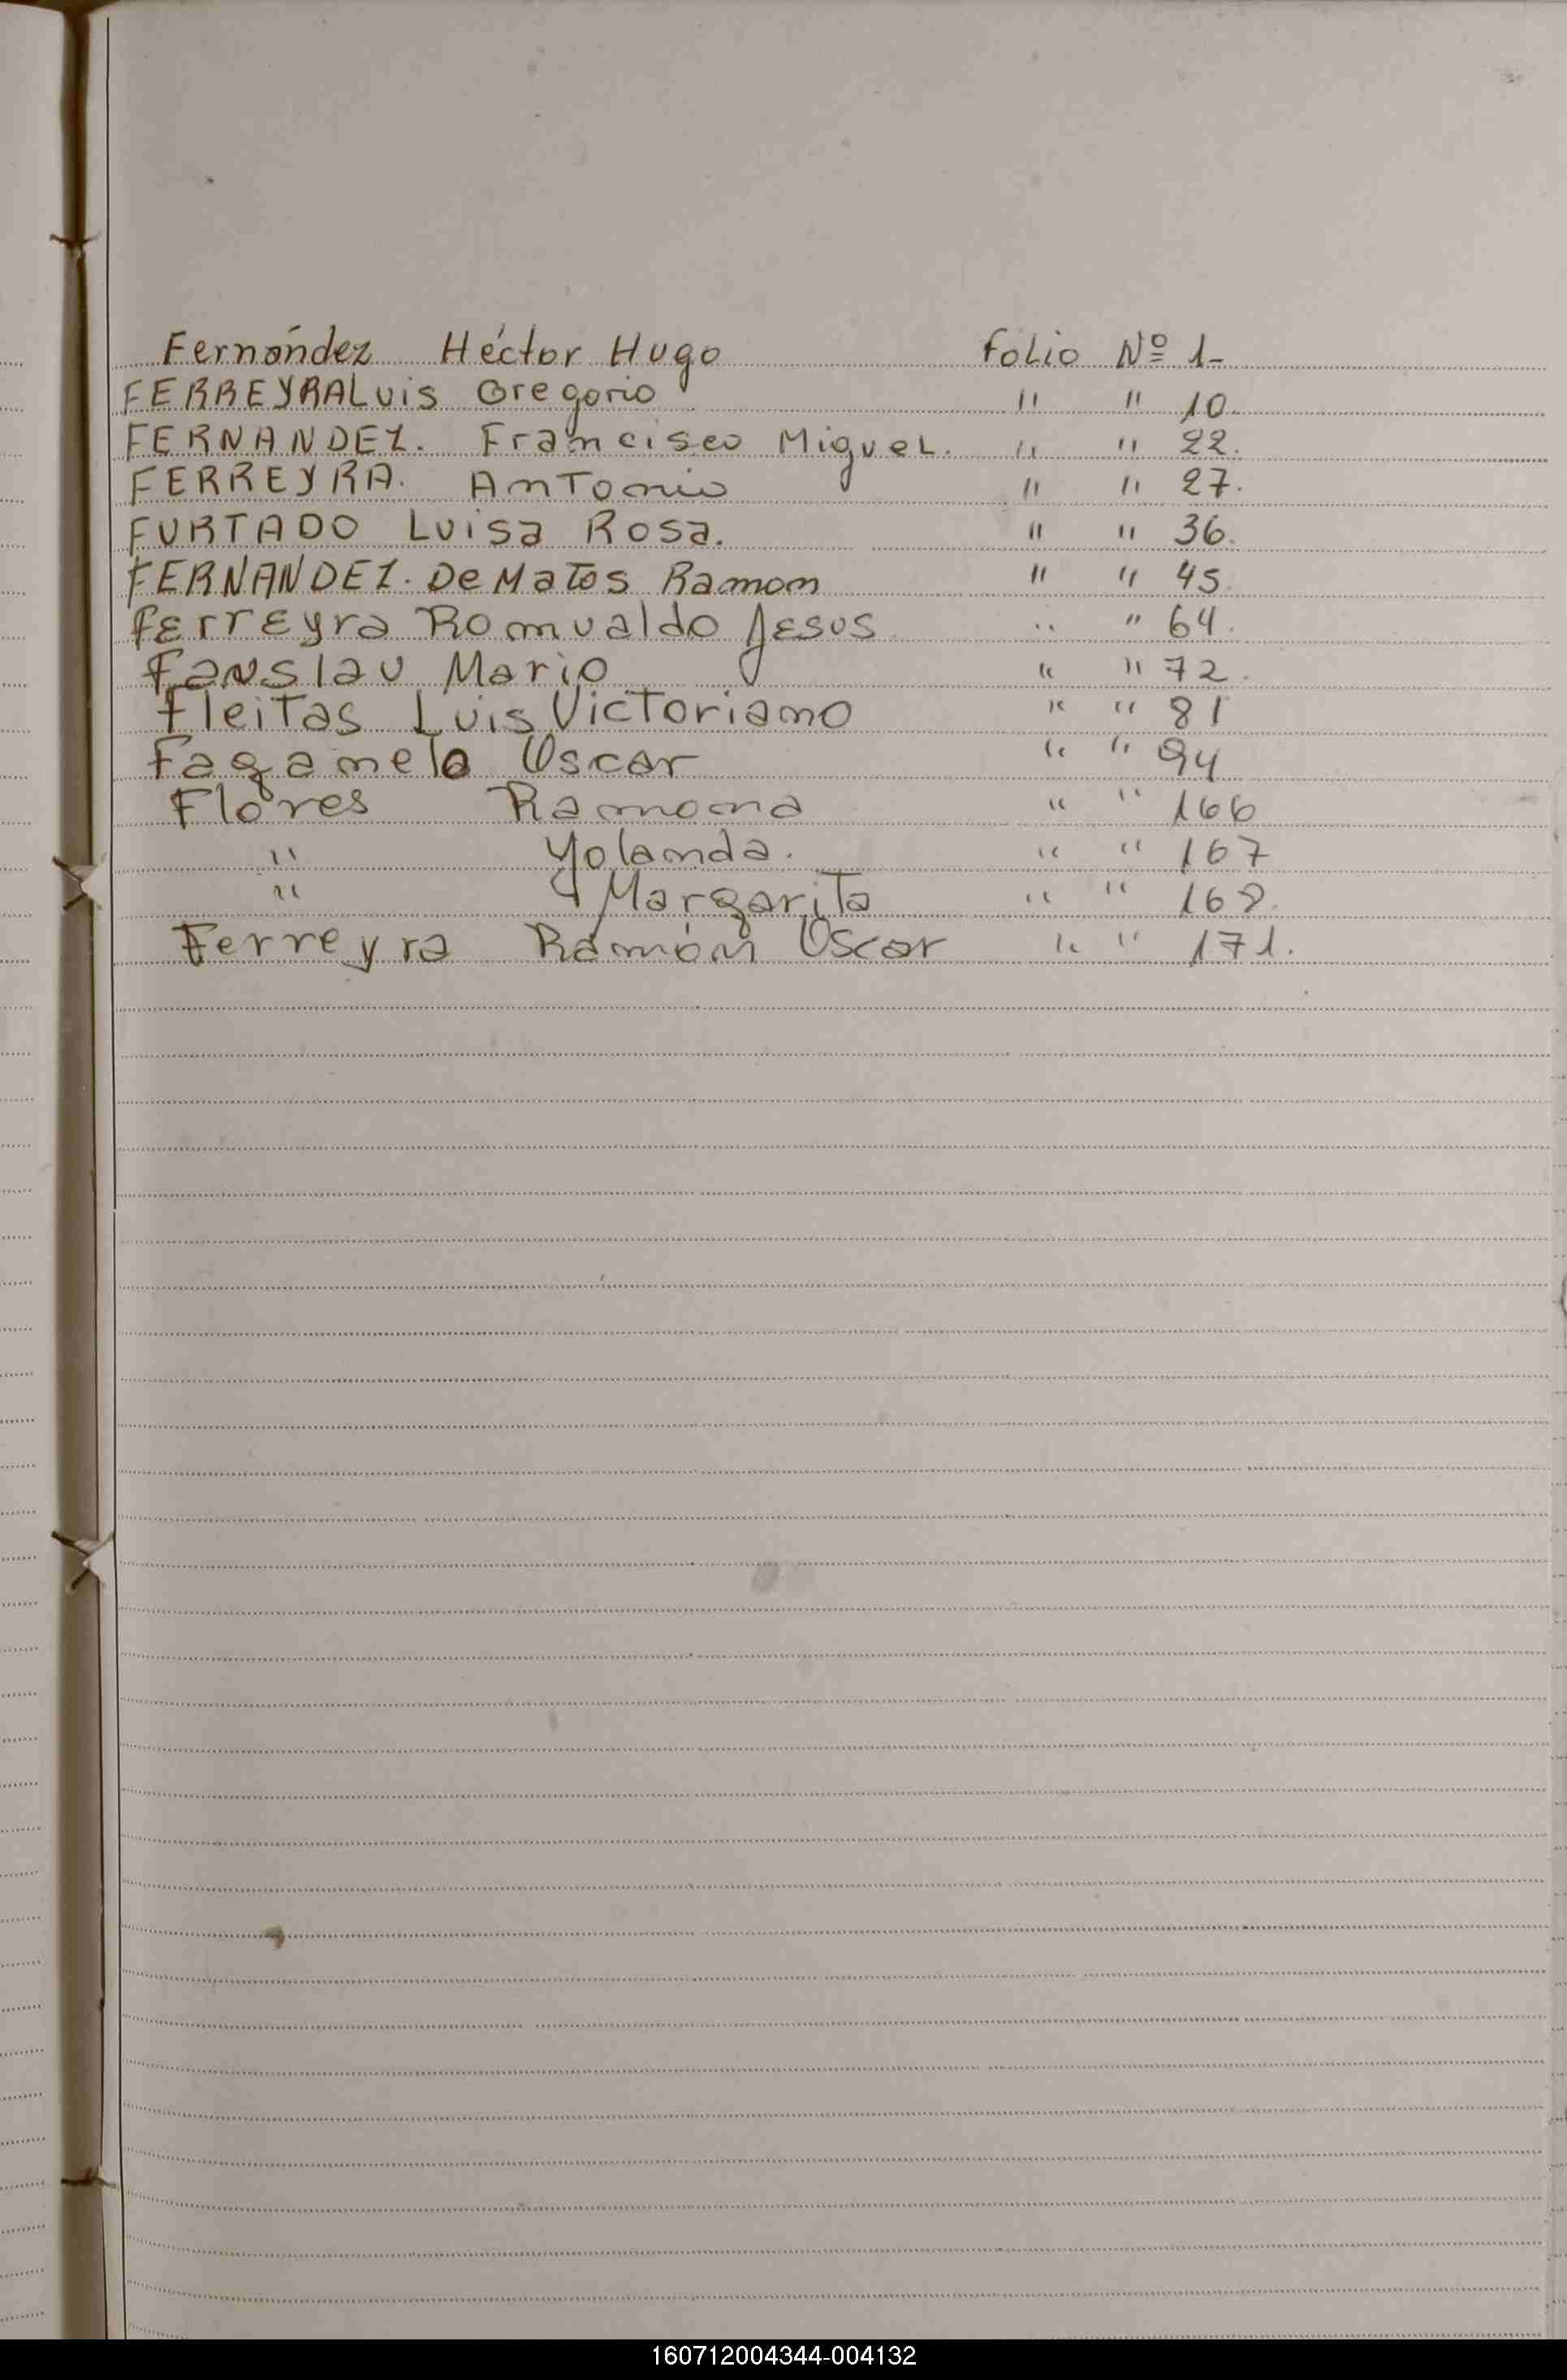 Fernández Héctor Hugo folio Nº 1-
FERREYRA Luis Gregorio " " 10.
FERNANDEZ. Francisco Miguel. " " 22.
FERREYRA. Antonio " " 27.
FURTADO Luisa Rosa. " " 36.
FERNANDEZ. De Matos Ramon " " 45.
Ferreyra Romualdo Jesus " " 64.
Fanslau Mario " " 72.
Fleitas Luis Victoriano " " 81
Fagamelo Oscar " " 94
Flores Ramona " " 166
" Yolanda. " " 167
" Margarita " " 168.
Ferreyra Ramón Oscar " " 171.
160712004344-004132